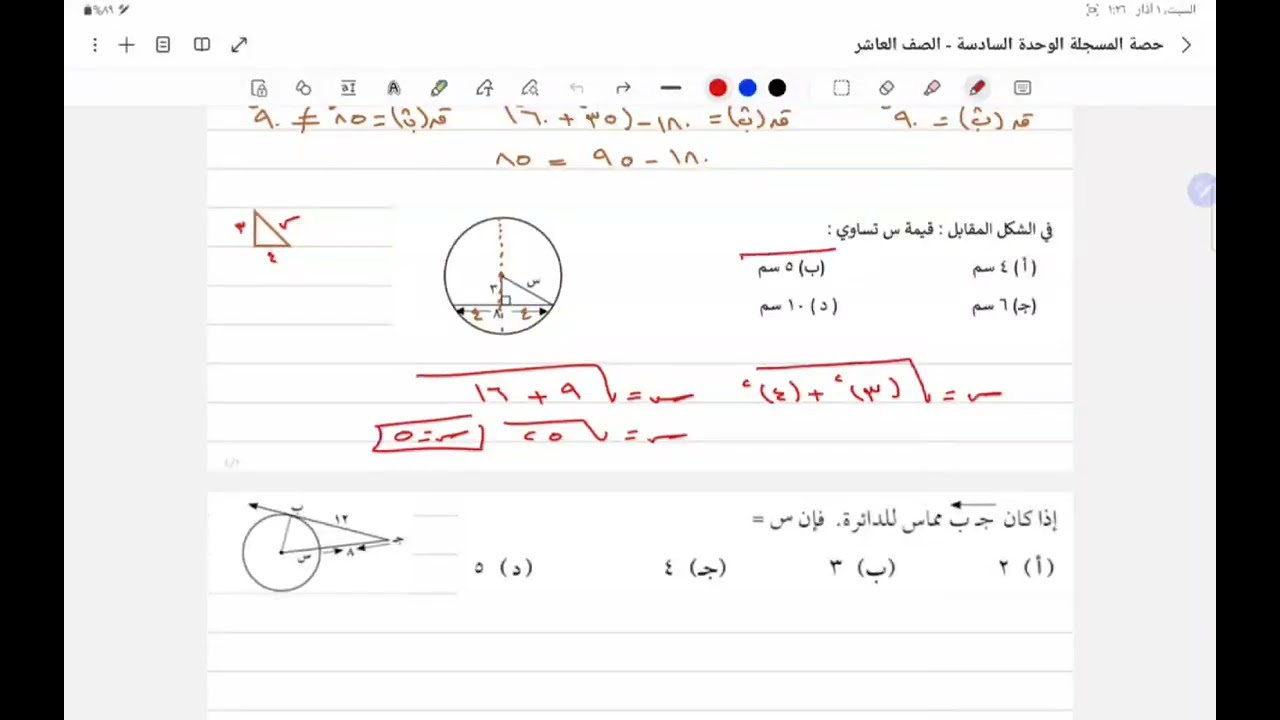 السبت، ١ آذار ١:٢٦
%٨٩
حصة المسجلة الوحدة السادسة - الصف العاشر
قد(بَ) = ٩٠ قد(بَ) = ١٨٠ - (٣٥ + ٦٠) قد(بَ) = ٨٥ ≠ ٩٠
١٨٠ - ٩٥ = ٨٥
في الشكل المقابل : قيمة س تساوي :
(أ) ٤ سم (ب) ٥ سم
(جـ) ٦ سم (د) ١٠ سم
س
٣
٤ ٨ ٤
٣ س
٤
س = √(٣)² + (٤)² س = √٩ + ١٦
س = √٢٥ س = ٥
إذا كان جـ ب مماس للدائرة. فإن س =
(أ) ٢ (ب) ٣ (جـ) ٤ (د) ٥
ب ١٢ جـ
س ٨